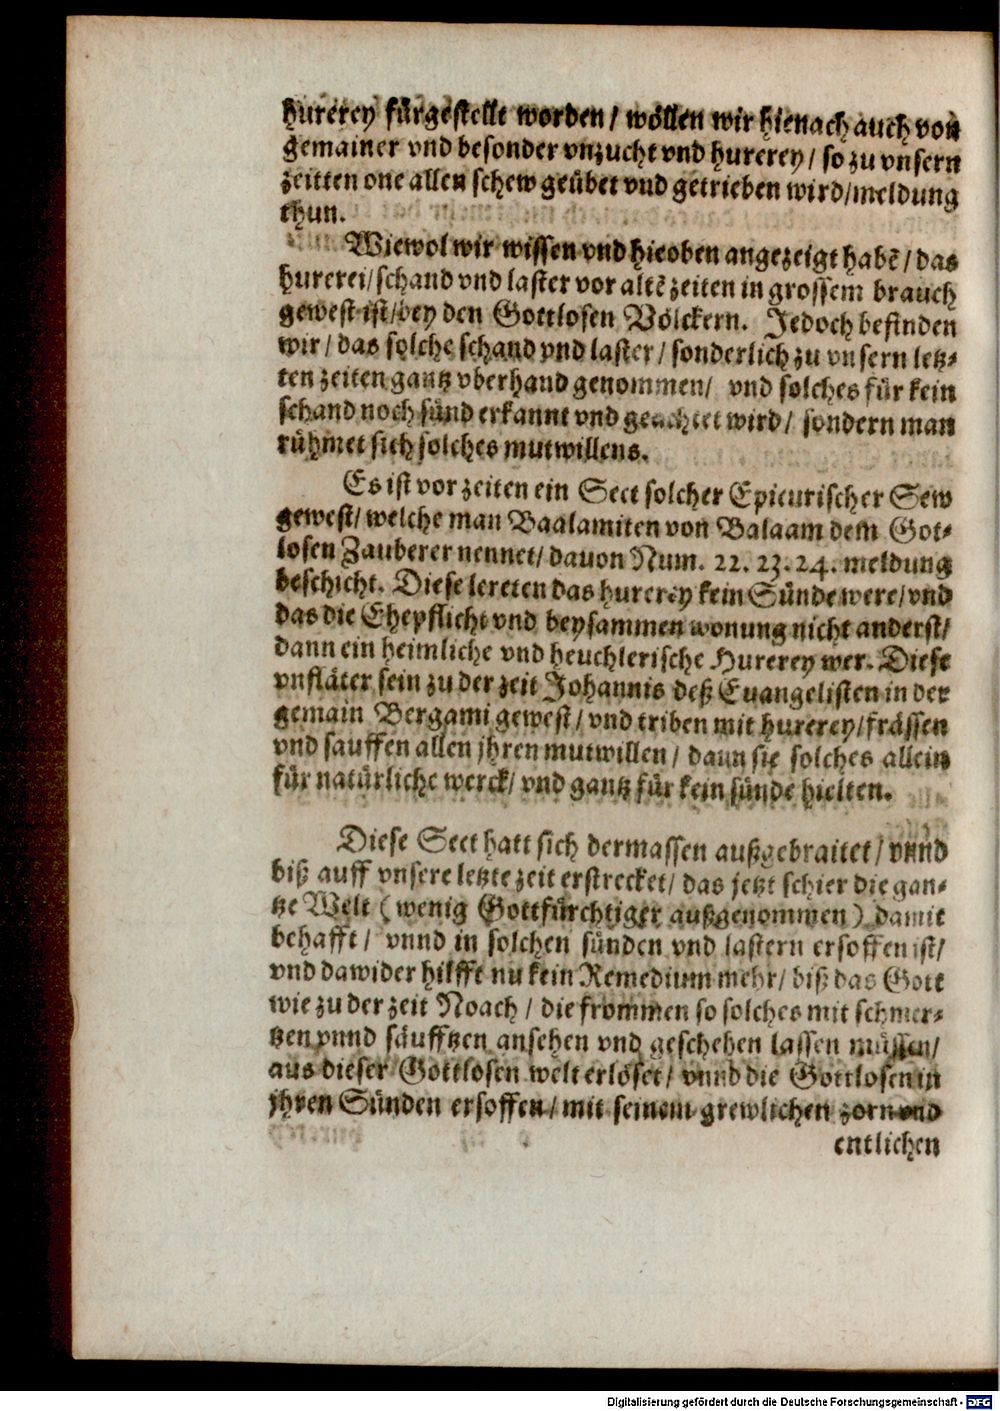 hurerey fürgestellt worden / wöllen wir hienach auch von
gemainer vnd besonder vnzucht vnd hurerey / so zu vnsern
zeitten one allen schew geübet vnd getrieben wird / meldung
thun.
Wiewol wir wissen vnd hieoben angezeigt habẽ / das
hurerei / schand vnd laster vor altẽ zeiten in grossem brauch
gewest ist / bey den Gottlosen Völckern. Jedoch befinden
wir / das solche schand vnd laster / sonderlich zu vnsern letz⸗
ten zeiten gantz vberhand genommen / vnd solches für kein
schand noch sünd erkannt vnd geachtet wird / sondern man
rühmet sich solches mutwillens.
Es ist vor zeiten ein Sect solcher Epicurischer Sew
gewest / welche man Baalamiten von Balaam dem Got⸗
losen Zauberer nennet / dauon Num. 22. 23. 24. meldung
beschicht. Diese lereten das hurerey kein Sünde were / vnd
das die Ehepflicht vnd beysammen wonung nicht anderst /
dann ein heimliche vnd heuchlerische Hurerey wer. Diese
vnfläter sein zu der zeit Johannis deß Euangelisten in der
gemain Bergami gewest / vnd triben mit hurerey / frässen
vnd sauffen allen jhren mutwillen / dann sie solches allein
für natürliche werck / vnd gantz für kein sünde hielten.
Diese Sect hatt sich dermassen außgebraitet / vnnd
biß auff vnsere letzte zeit erstrecket / das jetzt schier die gan⸗
tze Welt ( wenig Gottfürchtiger außgenommen ) damit
behafft / vnnd in solchen sünden vnd lastern ersoffen ist /
vnd dawider hilfft nu kein Remedium mehr / biß das Gott
wie zu der zeit Noach / die frommen so solches mit schmer⸗
tzen vnnd säufftzen ansehen vnd geschehen lassen müssen /
aus dieser Gottlosen welt erlöset / vnnd die Gottlosen in
jhren Sünden ersoffen / mit seinem grewlichen zorn vnd
entlichen
Digitalisierung gefördert durch die Deutsche Forschungsgemeinschaft - DFG